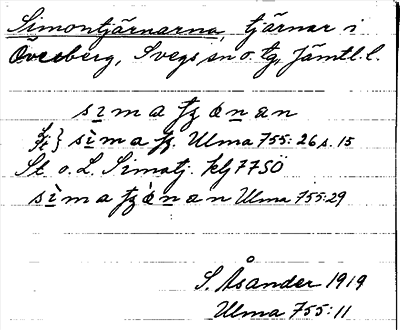 Simontjärnarna, tjärnar i
Överberg, Svegs sn o. tg, Jämtl. l.
sima tjɛ̀nan
sìma tj. Ulma 755: 26 s. 15
St o. L. Simatj. klj 77SÖ
sìma tjɛ̀nan Ulma 755:29
S. Åsander 1919
Ulma 755:11